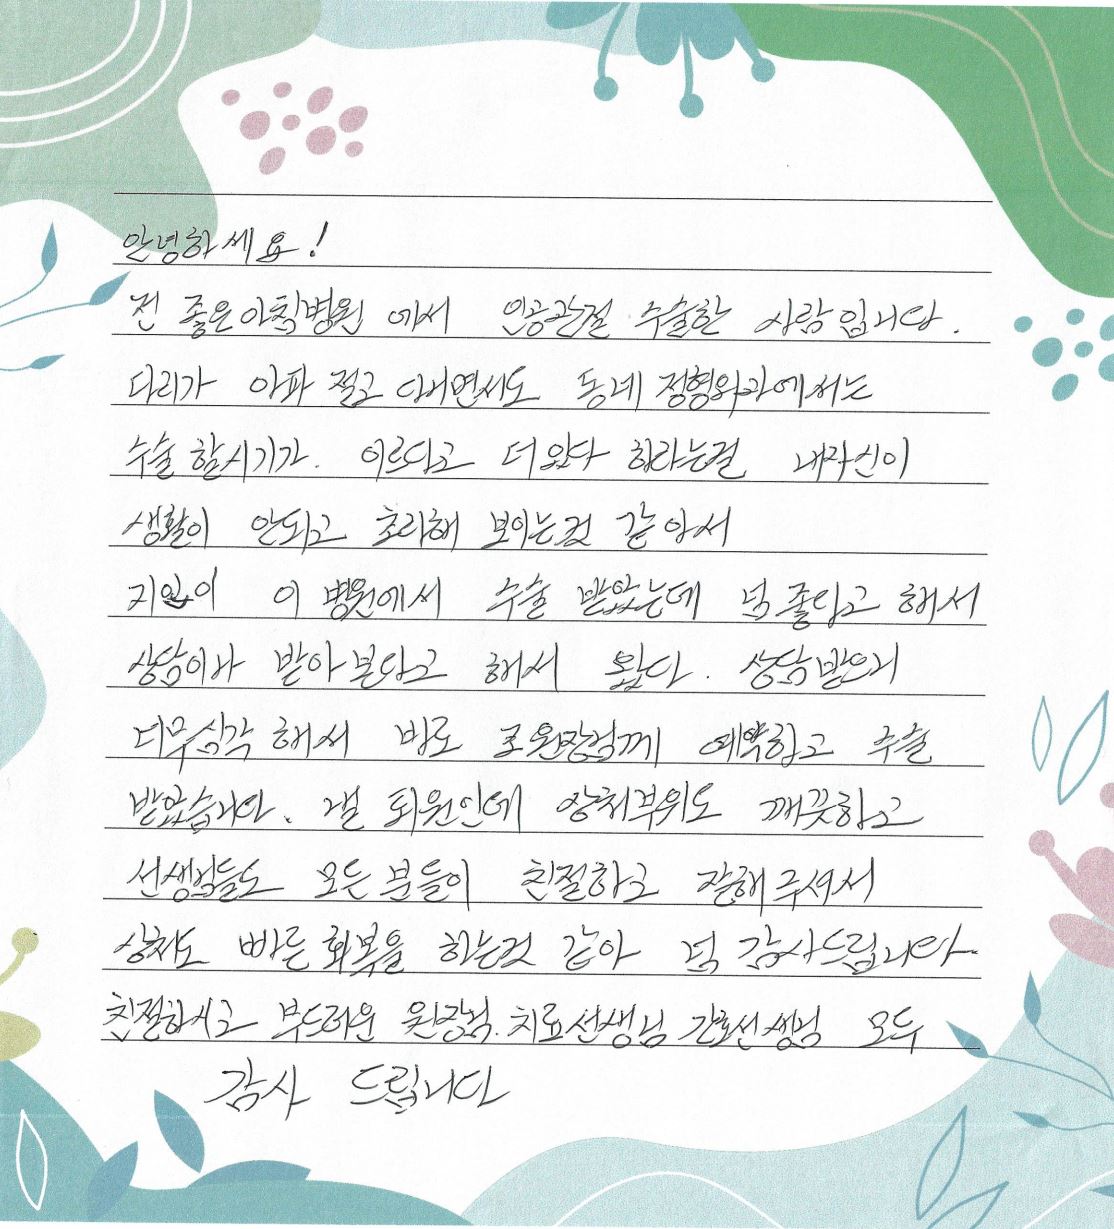 안녕하세요!
전 좋은아침병원 에서 인공관절 수술한 사람입니다.
다리가 아파 절고 다니면서도 동네 정형외과에서는
수술 할시기가. 이르다고 더있다 하라는걸 내자신이
생활이 안되고 초라해 보이는것 같아서
지인이 이 병원에서 수술 받았는데 넘 좋다고 해서
상담이라 받아본다고 해서 왔다. 상담받으니
너무심각 해서 바로 조원장님께 예약하고 수술
받았습니다. 낼 퇴원인데 상처부위도 깨끗하고
선생님들도 모든분들이 친절하고 잘해주셔서
상처도 빠른회복을 하는것 같아 넘 감사드립니다
친절하시고 부드러운 원장님.치료선생님 간호선생님 모두
감사 드립니다